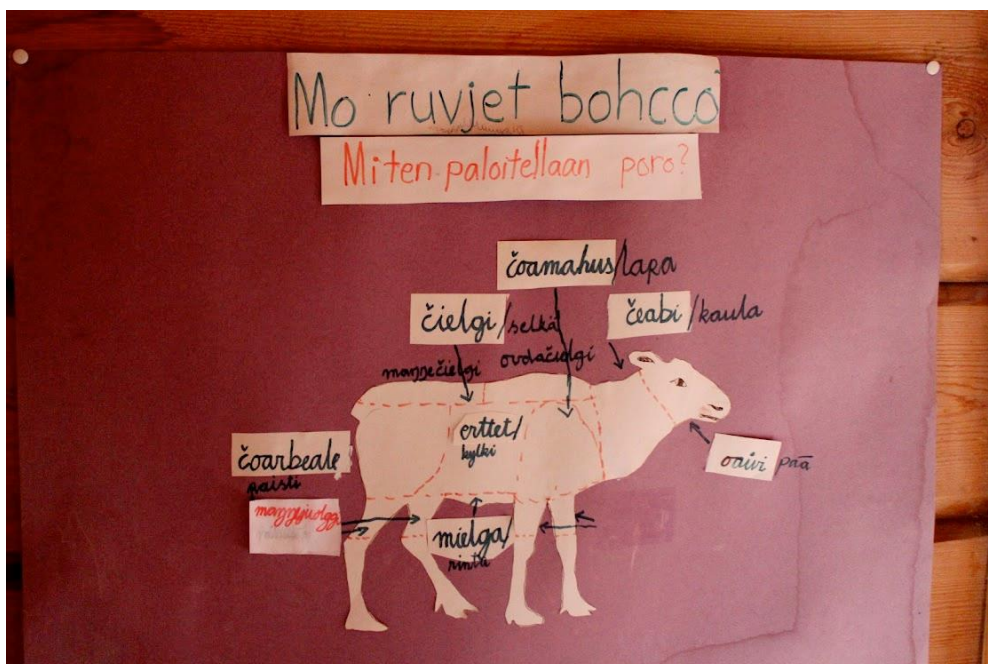 Mo ruvjet bohcco
Miten paloitellaan poro?
čoamahus/lapa
čielgi/selkä
čeabi/kaula
maŋŋečielgi
ovdačielgi
erttet/
kylki
čoarbeale
paisti
oaivi pää
mielga/
rinta